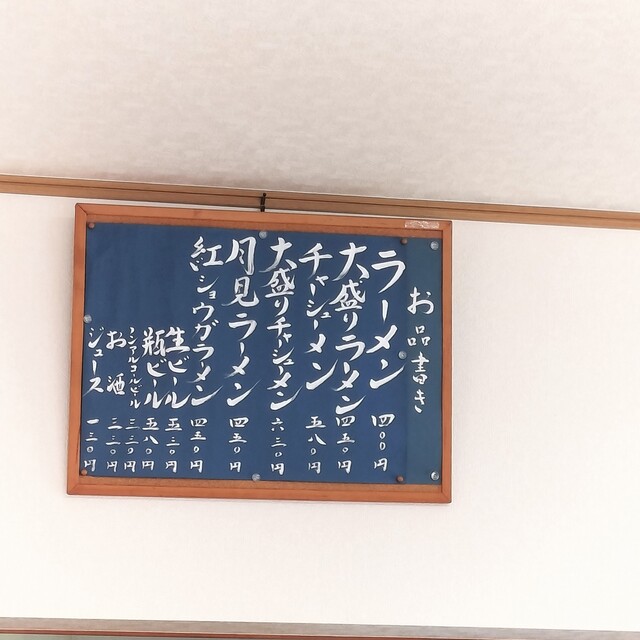 お品書き
ラーメン 四〇〇円
大盛りラーメン 四五〇円
チャーシューメン 五八〇円
大盛りチャーシューメン 六三〇円
月見ラーメン 四五〇円
紅ショウガラーメン 四五〇円
生ビール 五三〇円
瓶ビール 五八〇円
ノンアルコールビール 三三〇円
お酒 三三〇円
ジュース 一三〇円